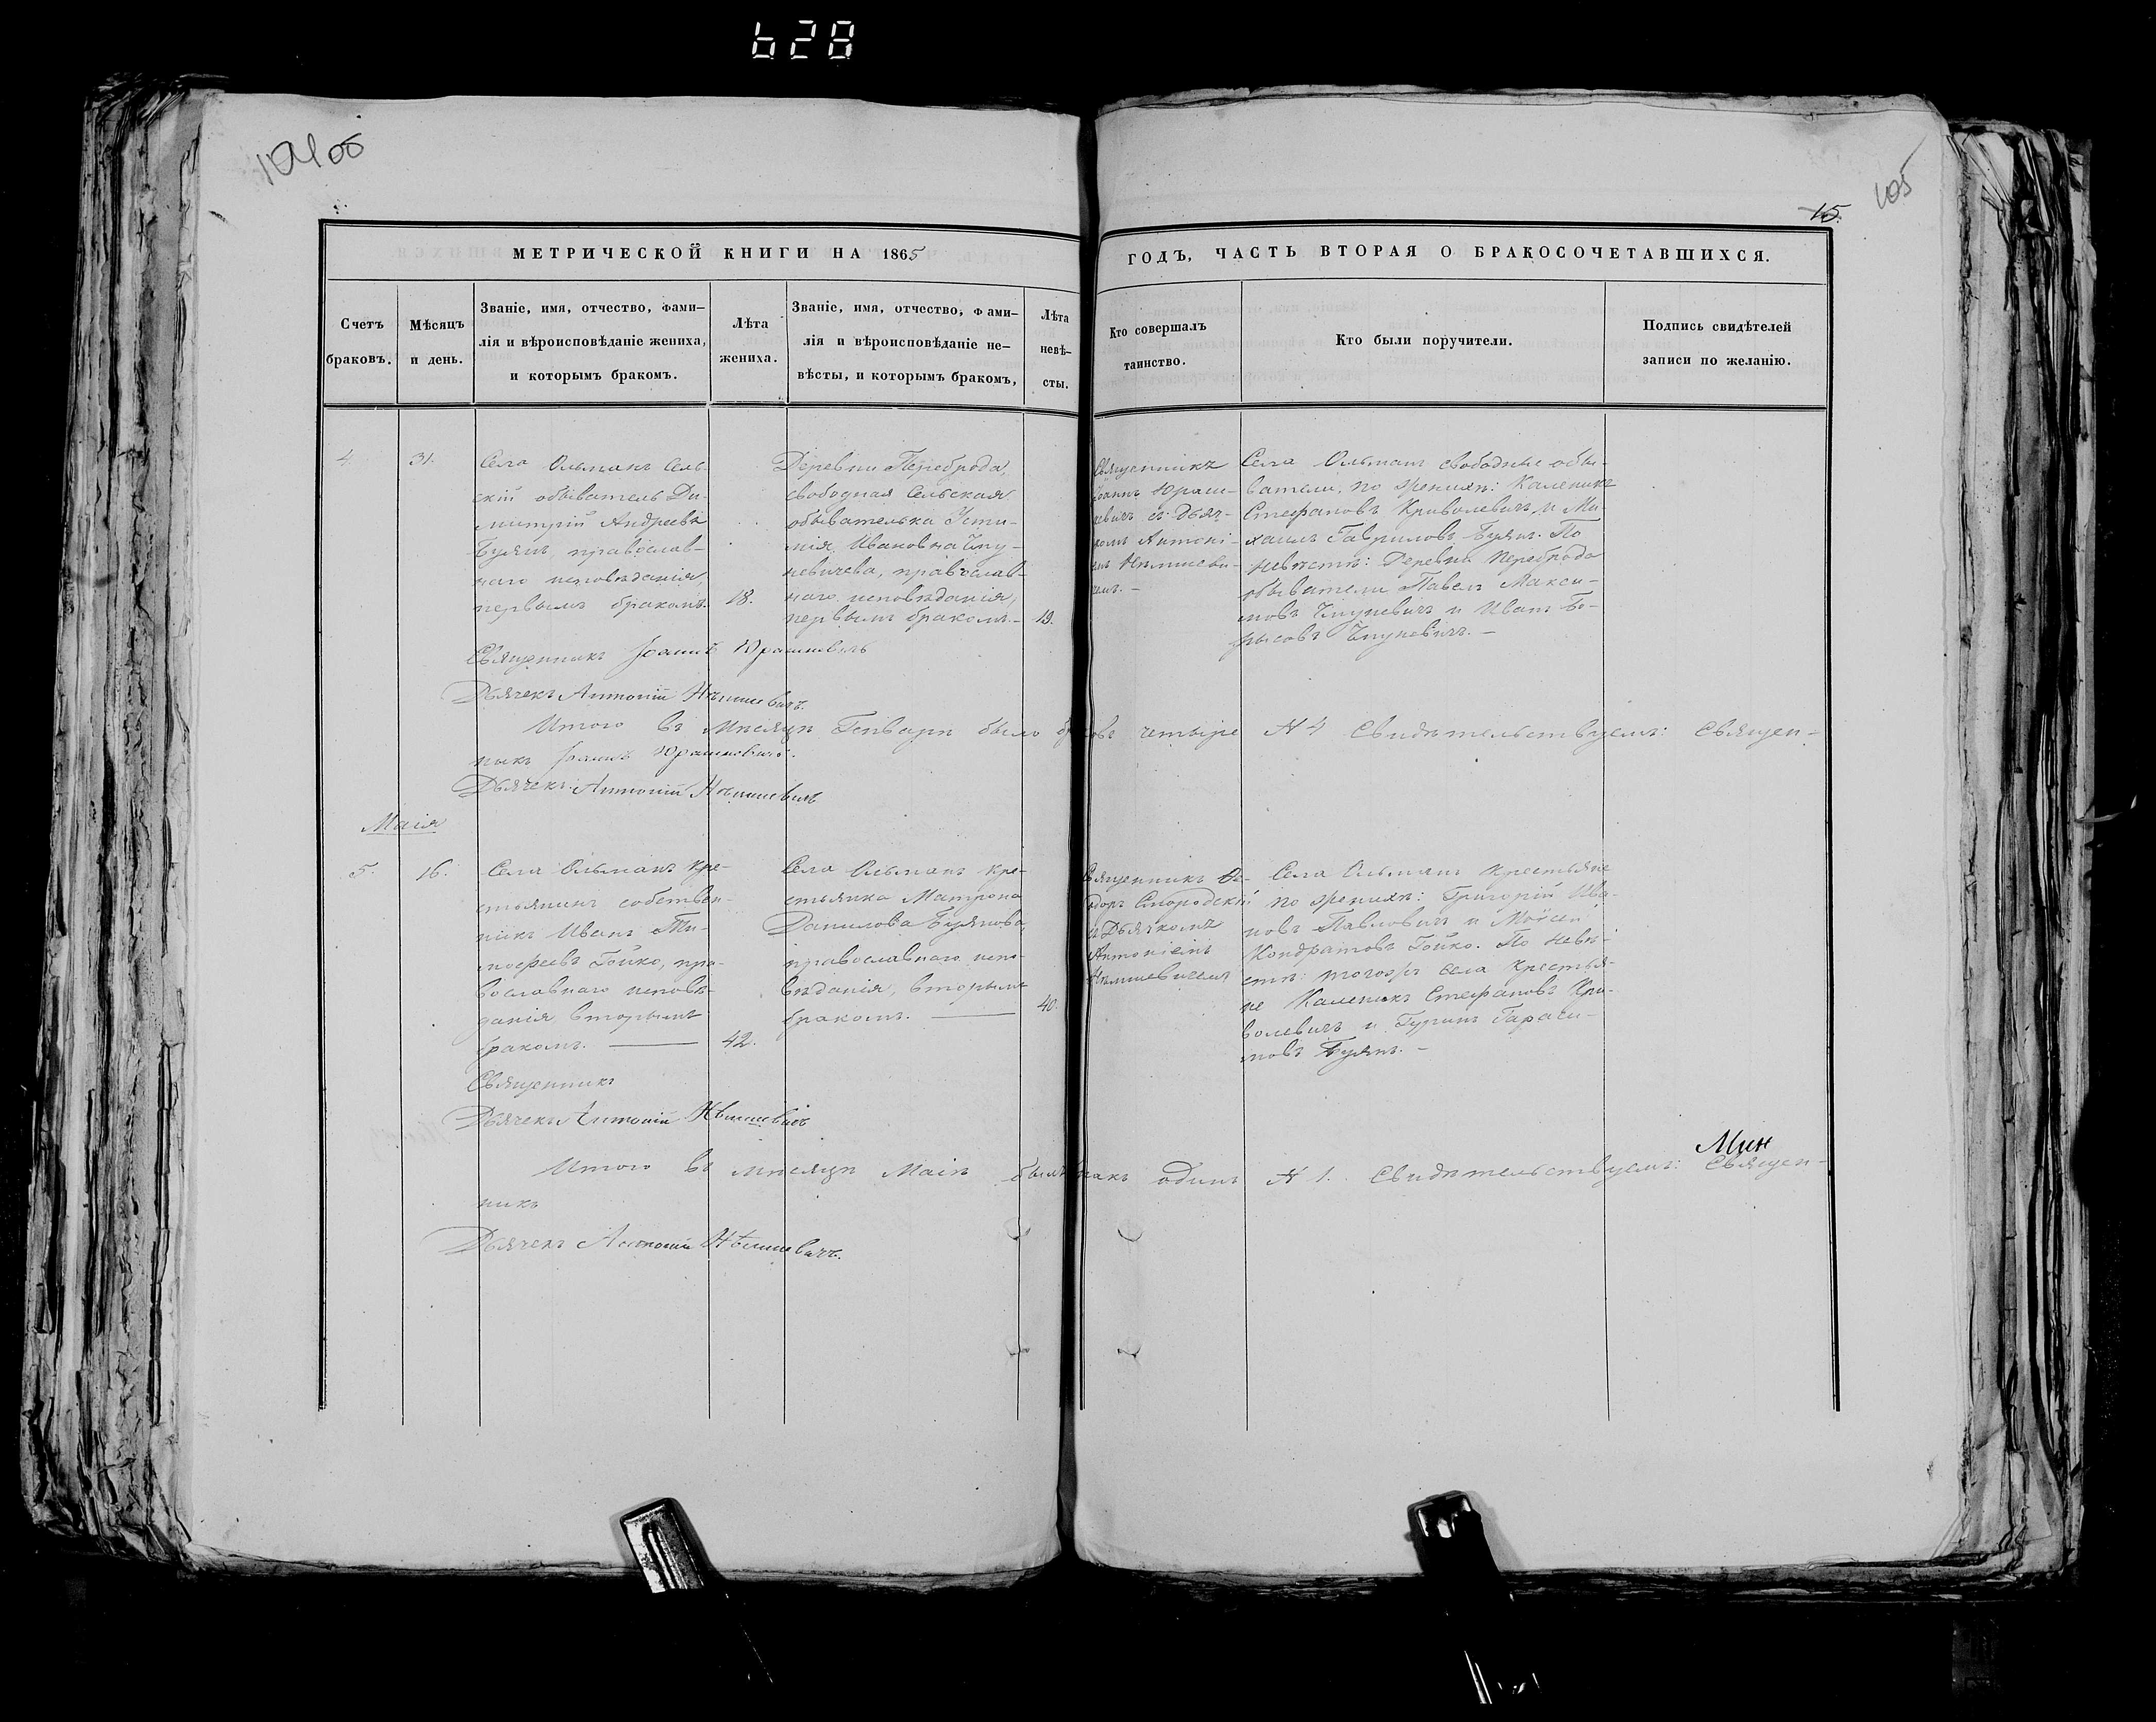 628
105
15.
МЕТРИЧЕСКОЙ КНИГИ НА 1865
ГОДЪ, ЧАСТЬ ВТОРАЯ О БРАКОСОЧЕТАВШИХСЯ.
Счетъ
браковъ.
Мѣсяцъ
и день.
Званіе, имя, отчество, фами-
лія и вѣроисповѣданіе жениха,
и которымъ бракомъ.
Лѣта
жениха.
Званіе, имя, отчество, фами-
лія и вѣроисповѣданіе не-
вѣсты, и которымъ бракомъ,
Лѣта
невѣ-
сты.
Кто совершалъ
таинство.
Кто были поручители.
Подпись свидѣтелей
записи по желанію.
4.
31.
Села Ольманъ Сель-
скій обыватель Ди-
митрій Андреевъ
Бузянъ, православ-
наго исповѣданія,
первымъ бракомъ.
18.
Деревни Переброда,
свободная Сельская
обывателька Усти-
нія Ивановна
православ-
наго исповѣданія,
первымъ бракомъ.
19.
Священникъ
Іоаннъ Юраш-
кевичъ съ дьяч-
комъ Антоні-
Села Ольманъ свободные обы-
ватели, по женихѣ: Каленикъ
Стефановъ Криволевичъ и Ми-
хаилъ Гавриловъ Бузянъ. По
невѣстѣ: Деревни Переброда
обыватели Павелъ Макси-
мовъ и Иванъ Бо-
рисовъ
Священникъ Іоаннъ Юрашкевичъ
Дьячекъ Антоній
Итого въ мѣсяцѣ Генварѣ было браковъ четыре № 4 Свидѣтельствуемъ: Священ-
никъ Іоаннъ Юрашкевичъ.
Дьячекъ Антоній
Маія
5.
16.
Села Ольманъ кре-
стьянинъ собствен-
никъ Иванъ Ти-
мофеевъ Гойко, пра-
вославнаго исповѣ-
данія вторымъ
бракомъ.
42.
Села Ольманъ кре-
стьянка Матрона
Данилова Бузянова,
православнаго испо-
вѣданія, вторымъ
бракомъ.
40.
Священникъ Ѳе-
одоръ Смородскій
съ Дьячкомъ
Антоніемъ
Села Ольманъ Крестьяне
по женихѣ: Григорій Ива-
новъ Павловичъ и Моѵсей
Кондратовъ Гойко. По невѣ-
стѣ: тогожъ села крестья-
не Каленикъ Стефановъ Кри-
волевичъ и Гуринъ Гараси-
мовъ Бузянъ.
Священникъ
Дьячекъ Антоній
Мин
Итого въ мѣсяцѣ Маіѣ былъ бракъ одинъ № 1. Свидѣтельствуемъ: Священ-
никъ
Дьячекъ Антоній